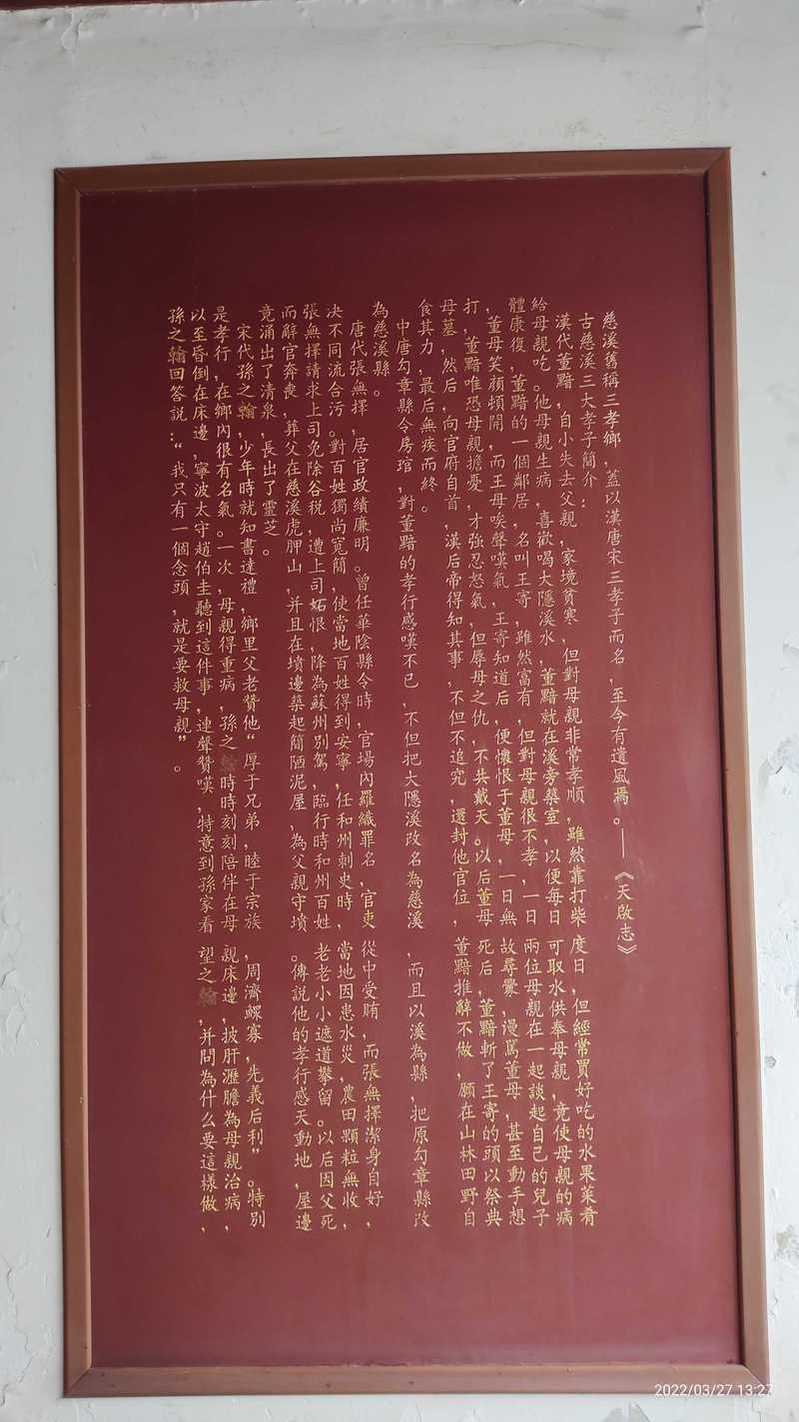 慈溪舊稱三孝鄉，蓋以漢唐宋三孝子而名，至今有遺風焉。——《天啟志》
古慈溪三大孝子簡介：
漢代董黯，自小失去父親，家境貧寒，但對母親非常孝順，雖然靠打柴度日，但經常買好吃的水果菜肴
給母親吃。他母親生病，喜歡喝大隱溪水，董黯就在溪旁築室，以便每日可取水供奉母親，竟使母親的病
體康復，董黯的一個鄰居，名叫王寄，雖然富有，但對母親很不孝，一日兩位母親在一起談起自己的兒子
，董母笑顏頓開，而王母唉聲嘆氣，王寄知道后，便懷恨于董母，一日無故尋釁，漫罵董母，甚至動手想
打，董黯唯恐母親擔憂，才強忍怒氣，但辱母之仇，不共戴天。以后董母死后，董黯斬了王寄的頭以祭典
母墓，然后，向官府自首，漢后帝得知其事，不但不追究，還封他官位，董黯推辭不做，願在山林田野自
食其力，最后無疾而終。
中唐勾章縣令房琯，對董黯的孝行感嘆不已，不但把大隱溪改名為慈溪，而且以溪為縣，把原勾章縣改
為慈溪縣。
唐代張無擇，居官政績廉明。曾任華陰縣令時，官場內羅織罪名，官吏從中受賄，而張無擇潔身自好，
決不同流合污。對百姓獨尚寬簡，使當地百姓得到安寧，任和州刺史時，當地因患水災，農田顆粒無收，
張無擇請求上司免除谷税，遭上司妬恨，降為蘇州別駕，臨行時和州百姓老老小小遮道攀留。以后因父死
而辭官奔喪，葬父在慈溪虎胛山，并且在墳邊築起簡陋泥屋，為父親守墳。傳說他的孝行感天動地，屋邊
竟涌出了清泉，長出了靈芝。
宋代孫之翰，少年時就知書達禮，鄉里父老贊他“厚于兄弟，睦于宗族，周濟鰥寡，先義后利”。特別
是孝行，在鄉內很有名氣。一次，母親得重病，孫之翰時時刻刻陪伴在母親床邊，披肝瀝膽為母親治病，
以至昏倒在床邊，寧波太守趙伯圭聽到這件事，連聲贊嘆，特意到孫家看望之翰，并問為什么要這樣做，
孫之翰回答説：“我只有一個念頭，就是要救母親”。
2022/03/27 13:27